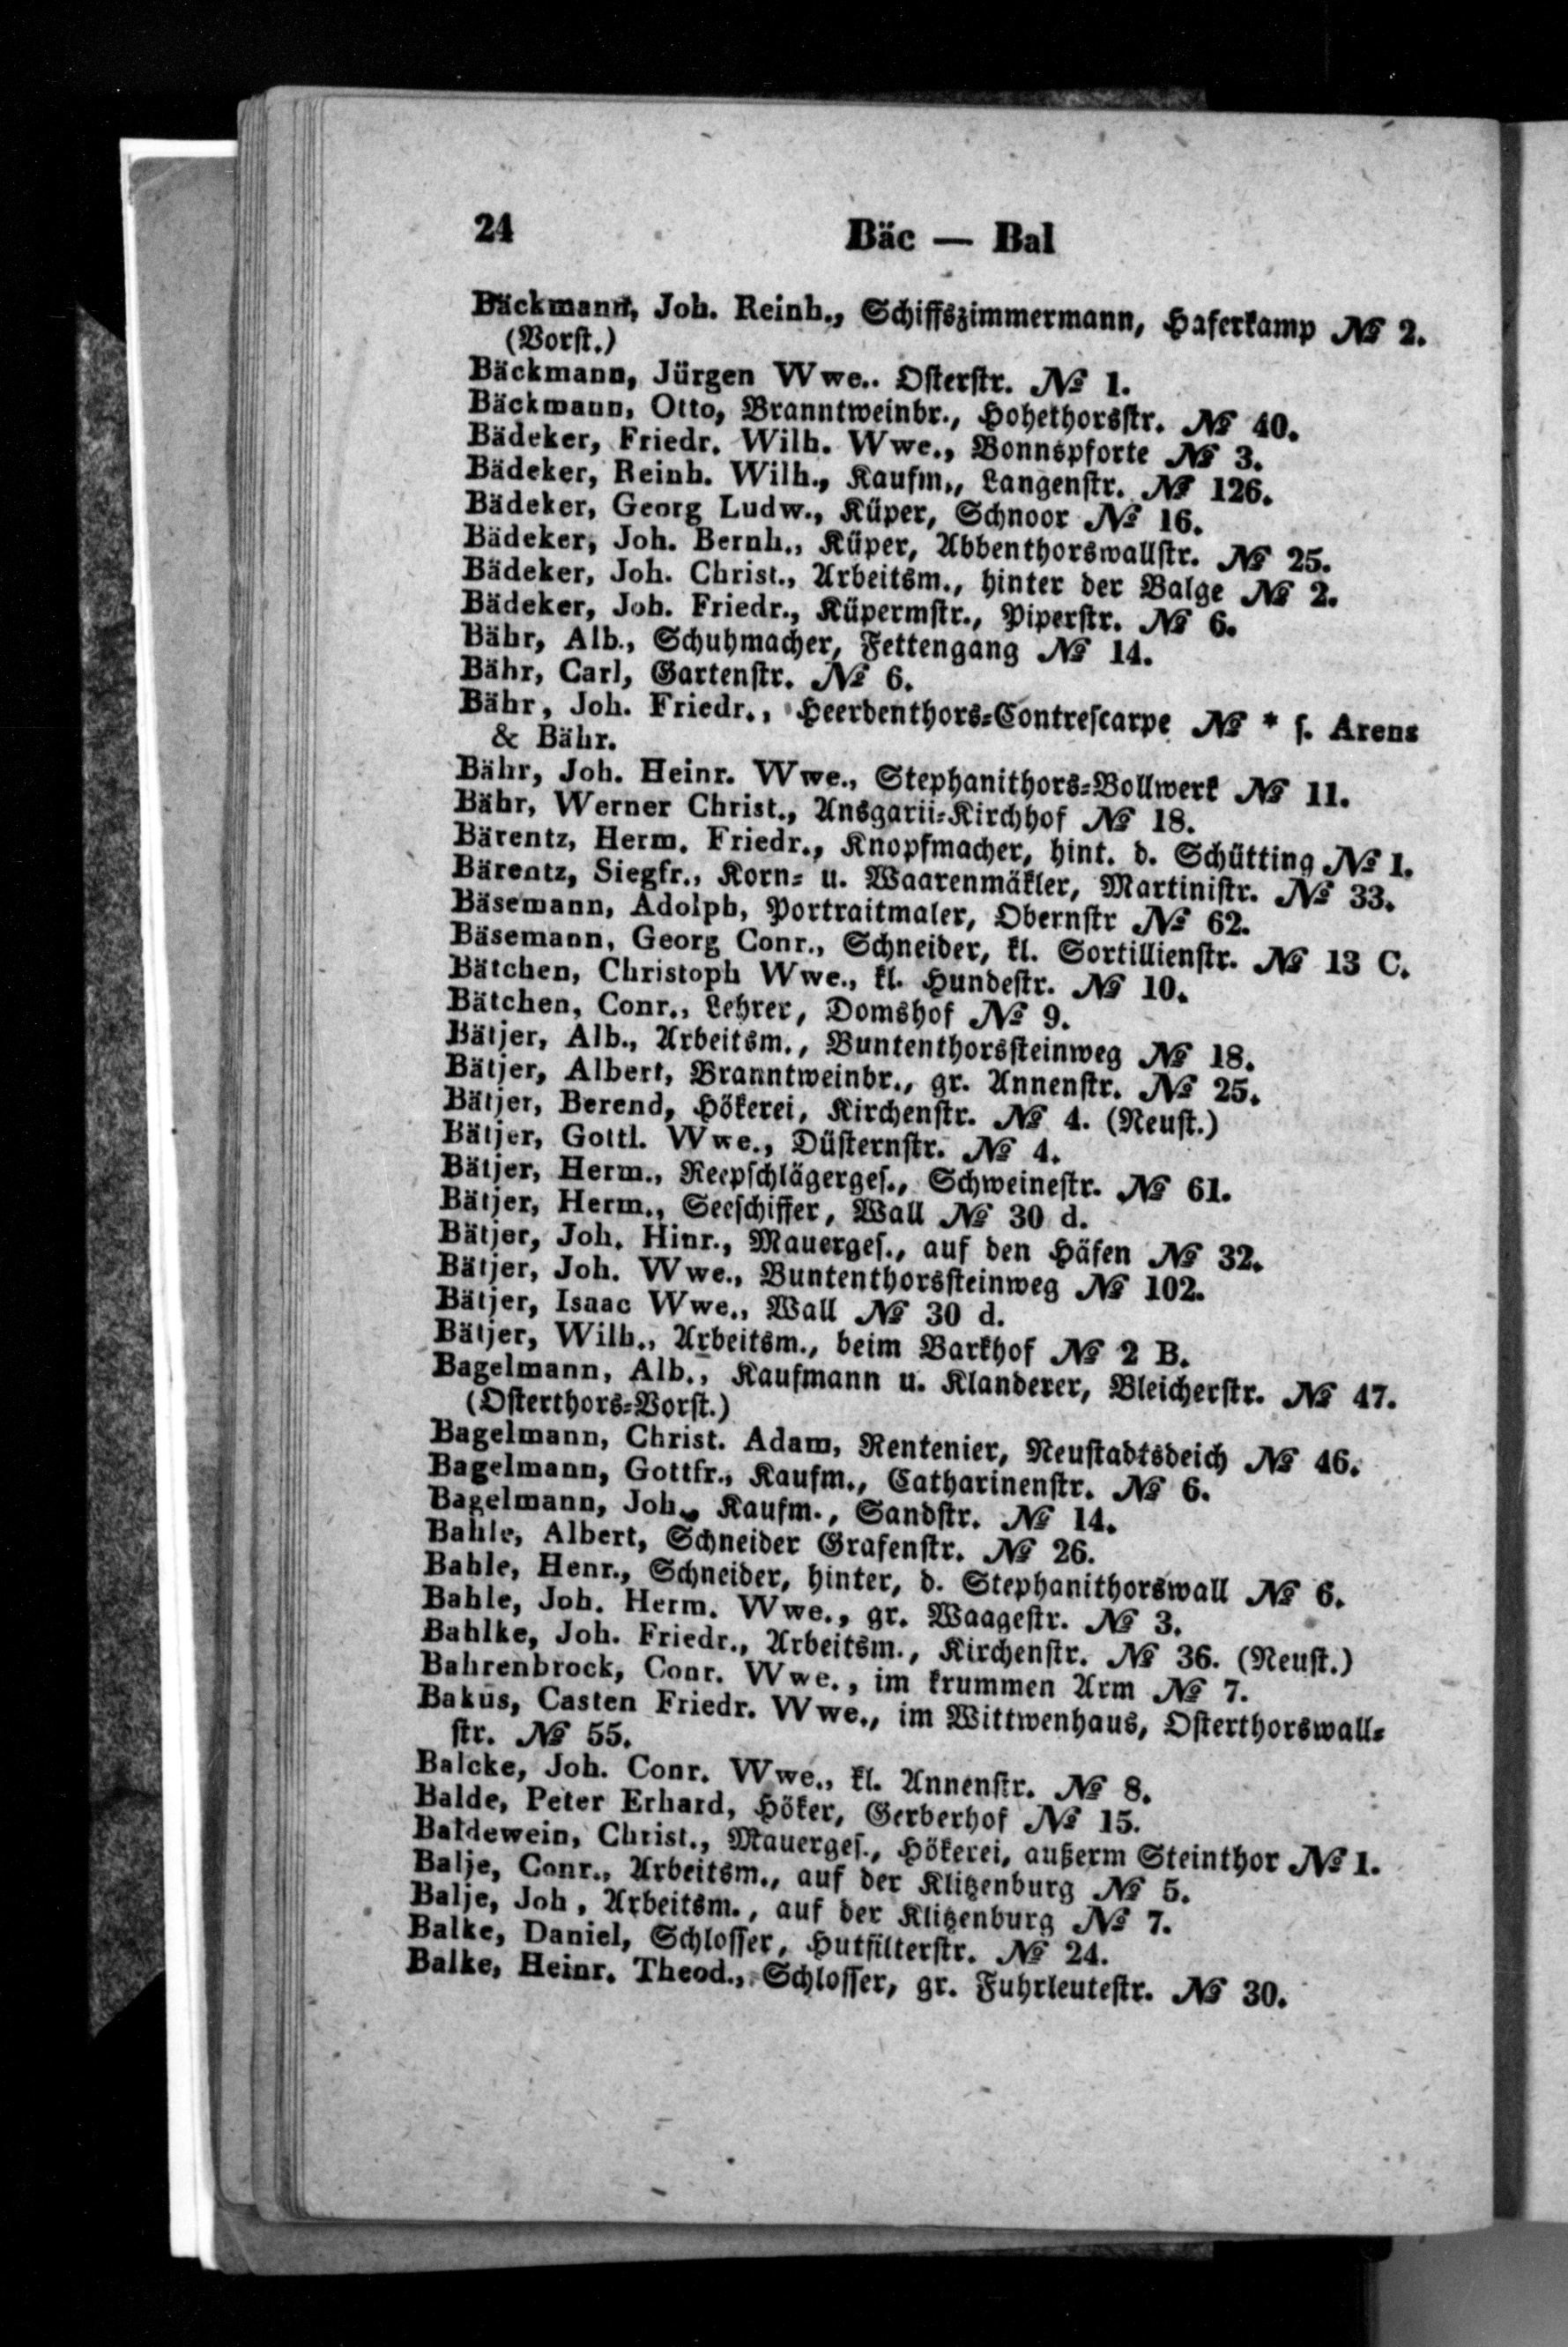 24
Bäc — Bal
Bäckmann, Joh. Reinh., Schiffszimmermann, Haferkamp № 2.
(Vorst.)
Bäckmann, Jürgen Wwe.. Osterstr. № 1.
Bäckmann, Otto, Branntweinbr., Hohethorsstr. № 40.
Bädeker, Friedr. Wilh. Wwe., Bonnspforte № 3.
Bädeker, Reinh. Wilh., Kaufm., Langenstr. № 126.
Bädeker, Georg Ludw., Küper, Schnoor № 16.
Bädeker, Joh. Bernh., Küper, Abbenthorswallstr. № 25.
Bädeker, Joh. Christ., Arbeitsm., hinter der Balge № 2.
Bädeker, Joh. Friedr., Küpermstr., Piperstr. № 6.
Bähr, Alb., Schuhmacher, Fettengang № 14.
Bähr, Carl, Gartenstr. № 6.
Bähr, Joh. Friedr., Heerdenthors-Contrescarpe № * s. Arens
& Bähr.
Bähr, Joh. Heinr. Wwe., Stephanithors-Bollwerk № 11.
Bähr, Werner Christ., Ansgarii-Kirchhof № 18.
Bärentz, Herm. Friedr., Knopfmacher, hint. d. Schütting № 1.
Bärentz, Siegfr., Korn- u. Waarenmäkler, Martinistr. № 33.
Bäsemann, Adolph, Portraitmaler, Obernstr № 62.
Bäsemann, Georg Conr., Schneider, kl. Sortillienstr. № 13 C.
Bätchen, Christoph Wwe., kl. Hundestr. № 10.
Bätchen, Conr., Lehrer, Domshof № 9.
Bätjer, Alb., Arbeitsm., Buntenthorssteinweg № 18.
Bätjer, Albert, Branntweinbr., gr. Annenstr. № 25.
Bätjer, Berend, Hökerei, Kirchenstr. № 4. (Neust.)
Bätjer, Gottl. Wwe., Düsternstr. № 4.
Bätjer, Herm., Reepschlägerges., Schweinestr. № 61.
Bätjer, Herm., Seeschiffer, Wall № 30 d.
Bätjer, Joh. Hinr., Mauerges., auf den Häfen № 32.
Bätjer, Joh. Wwe., Buntenthorssteinweg № 102.
Bätjer, Isaac Wwe., Wall № 30 d.
Bätjer, Wilh., Arbeitsm., beim Barkhof № 2 B.
Bagelmann, Alb., Kaufmann u. Klanderer, Bleicherstr. № 47.
(Osterthors-Vorst.)
Bagelmann, Christ. Adam, Rentenier, Neustadtsdeich № 46.
Bagelmann, Gottfr., Kaufm., Catharinenstr. № 6.
Bagelmann, Joh., Kaufm., Sandstr. № 14.
Bahle, Albert, Schneider Grafenstr. № 26.
Bahle, Henr., Schneider, hinter, d. Stephanithorswall № 6.
Bahle, Joh. Herm. Wwe., gr. Waagestr. № 3.
Bahlke, Joh. Friedr., Arbeitsm., Kirchenstr. № 36. (Neust.)
Bahrenbrock, Conr. Wwe., im krummen Arm № 7.
Bakus, Casten Friedr. Wwe., im Wittwenhaus, Osterthorswall-
str. № 55.
Balcke, Joh. Conr. Wwe., kl. Annenstr. № 8.
Balde, Peter Erhard, Höker, Gerberhof № 15.
Baldewein, Christ., Mauerges., Hökerei, außerm Steinthor № 1.
Balje, Conr., Arbeitsm., auf der Klitzenburg № 5.
Balje, Joh, Arbeitsm., auf der Klitzenburg № 7.
Balke, Daniel, Schlosser, Hutfilterstr. № 24.
Balke, Heinr. Theod., Schlosser, gr. Fuhrleutestr. № 30.